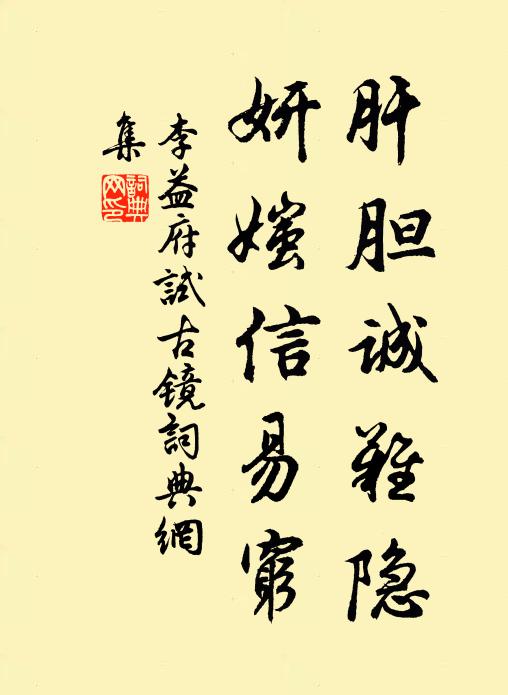 肝胆诚难隐
妍媸信易穷
李益府試古镜詞典網
集
詞典网印